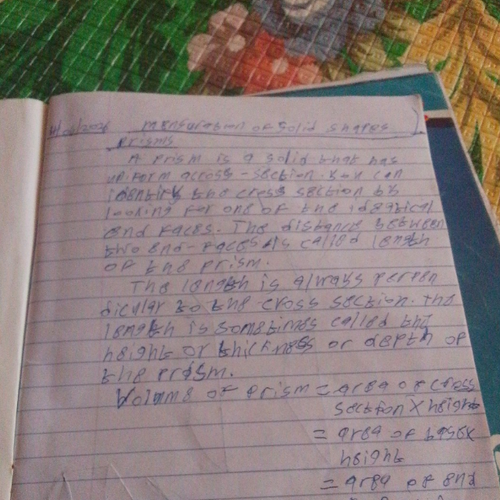 /06/2026 mensuration of solid shapes
Prisms
A Prism is a solid that has
uniform across-section. You can
identify the cross section by
looking for one of the identical
end faces. The distance between
two end-faces is called length
of the prism.
The length is always perpen
dicular to the cross section. The
length is sometimes called the
height or thickness or depth of
the prism.
Volume of Prism = area of cross
section X height
= area of base x
height
= area of end